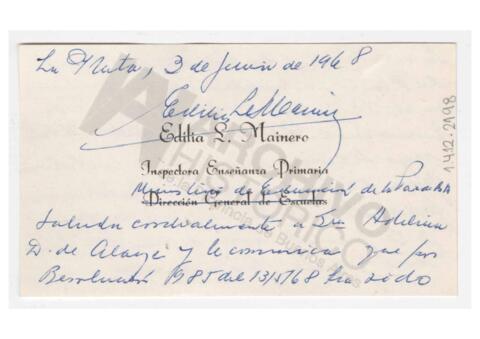 La Plata, 3 de Junio de 1968
Edilia L. Mainero
Edilia L. Mainero
Inspectora Enseñanza Primaria
Ministerio de Educación de la
Dirección General de Escuelas
saluda cordialmente a Sra Adelina
D. de y le comunica que por
Resolución 1985 del 13/5/68 ha sido
ARCHIVO
HISTÓRICO
1.4.12.2A98